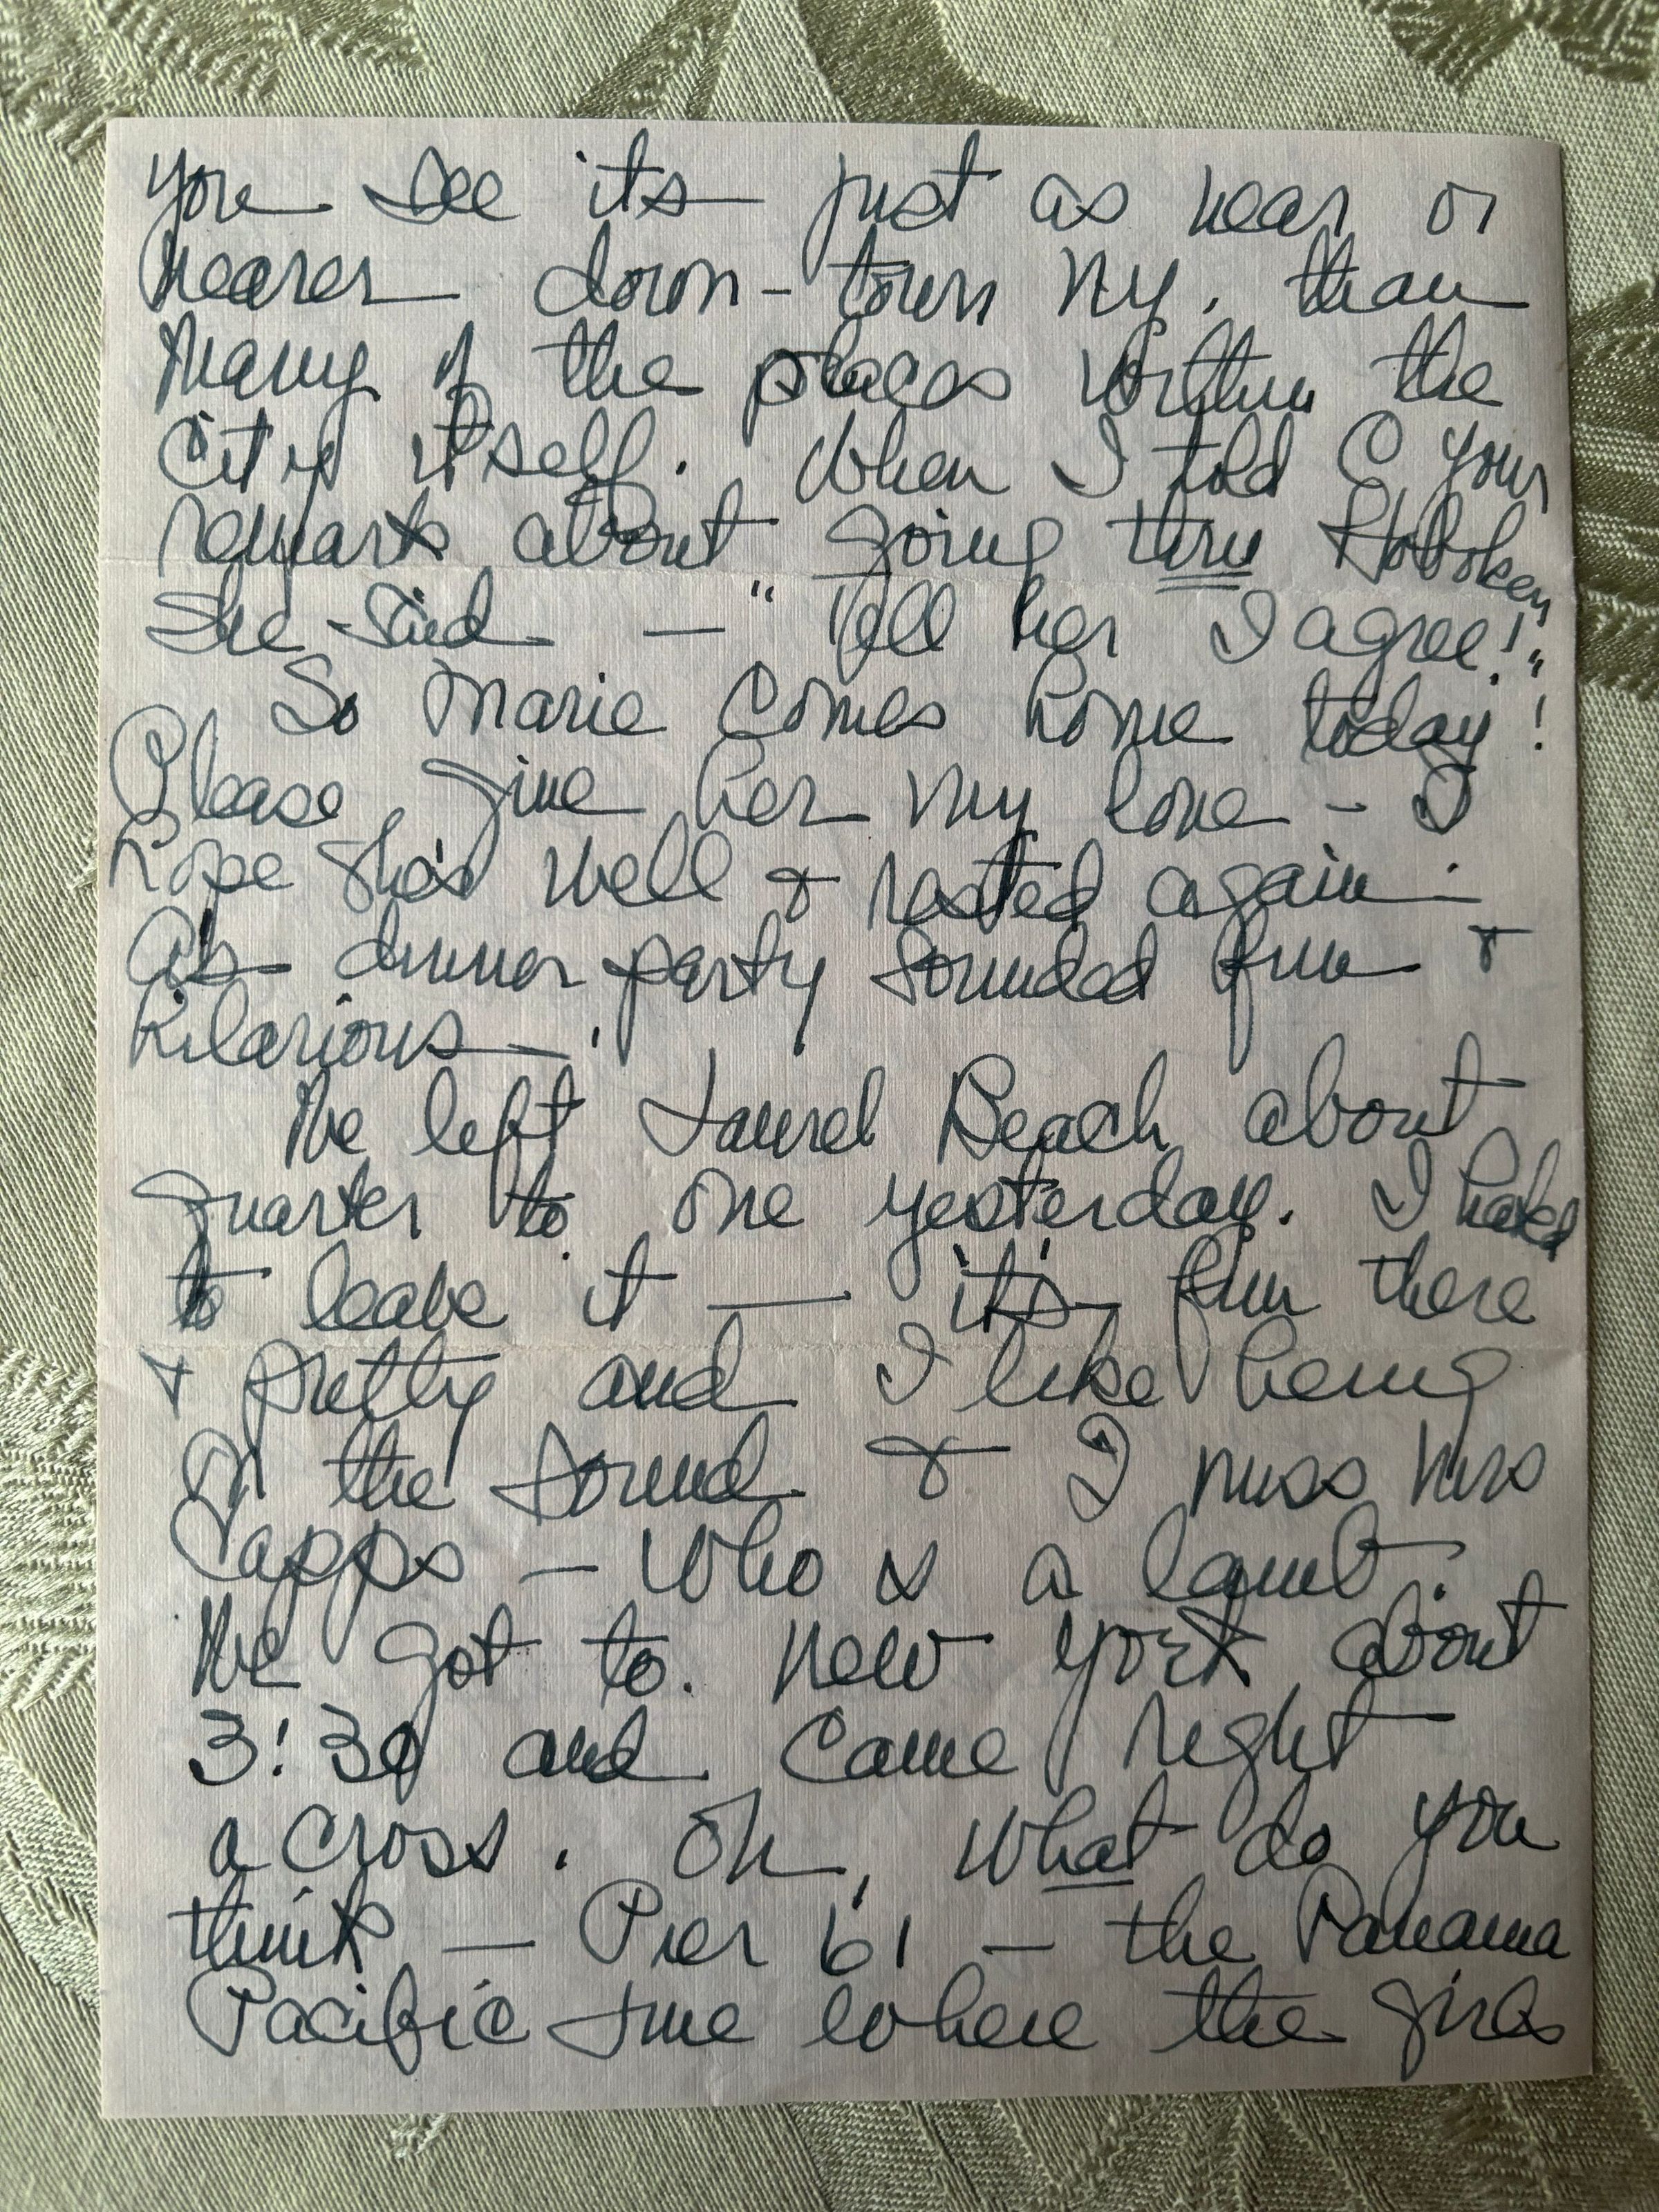 you see its just as near or
nearer down-town N.Y. than
many of the places within the
city itself. When I told C your
remark about going thru Hoboken
she said — "Tell her I agree!"
So Marie comes home today!
Please give her my love - I
hope she's well & rested again -
A's dinner party sounded fun &
hilarious.
We left Laurel Beach about
quarter to one yesterday. I hated
to leave it — it's fun there
& pretty and I like being
on the sound & I miss Mrs
Capps - who is a lamb.
We got to New York about
3:30 and came right
across. Oh, what do you
think — Pier 61 - the Panama
Pacific Line where the girls